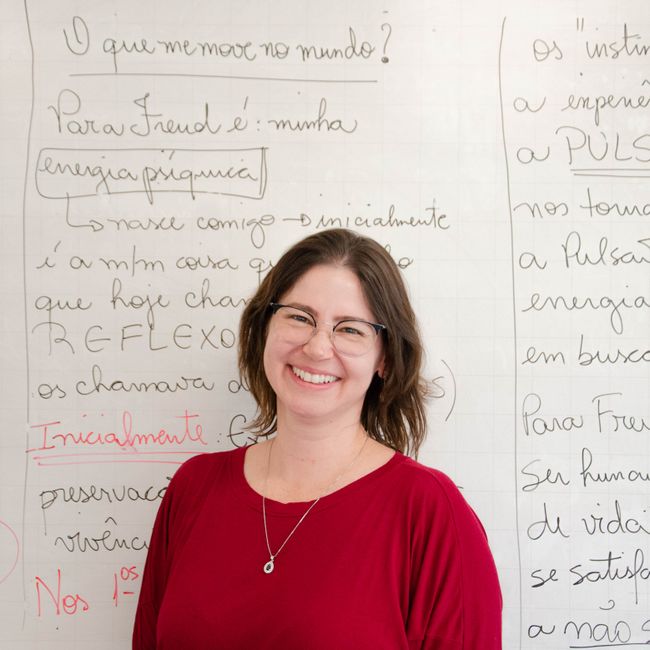 O que me move no mundo?
Para Freud é: minha
energia psíquica
↳ nasce comigo → inicialmente
é a m/m coisa
que hoje
REFLEXO
os chamava
Inicialmente:
Nos 1os
os "insti
a
a PULS
nos
a Pulsã
energia
em busca
Para Fre
Ser huma
de vida
se satisf
a não s